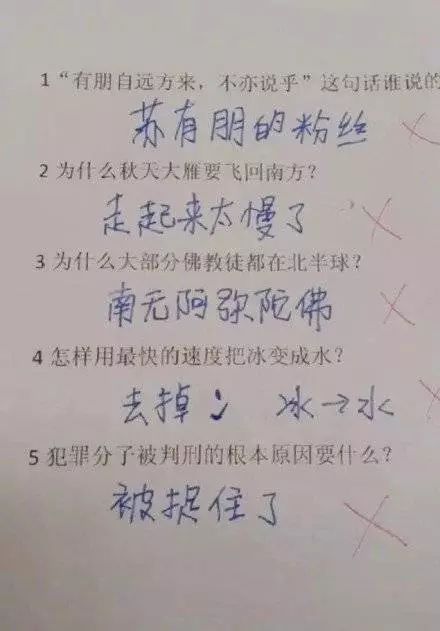 1 “有朋自远方来，不亦说乎”这句话谁说的
苏有朋的粉丝
2 为什么秋天大雁要飞回南方？
走起来太慢了
3 为什么大部分佛教徒都在北半球？
南无阿弥陀佛
4 怎样用最快的速度把冰变成水？
去掉冫 冰→水
5 犯罪分子被判刑的根本原因要什么？
被捉住了